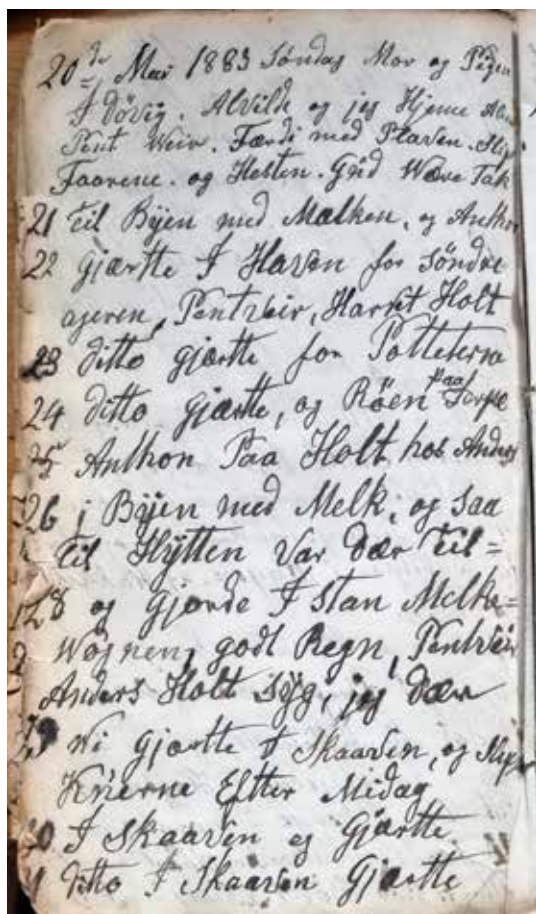 20de Mai 1883 Söndag Mor og Pigen
I Dövig. Alvilde og jeg Hjeme
Pent Weir. Færdi med Plaaven. Slip
Faarene. og Hesten. Gud Wære Tak
21 til Büen med Mælken, og Anthon
22 gjærtte I Haven for Söndre
ageren, PentVeir, Harvet Holt
23 ditto gjærtte for Potteterne
24 ditto gjærtte, og Röen paa
25 Anthon Paa Holt hos Anders
26 i Büen med Melk, og saa
til Hÿtten Var Dær til=
28 og gjorde I stan Melke=
Wognen, godt Regn, PentVeir
Anders Holt Sÿg, jeg Dær
29 Wi gjærtte I Skaaven, og Slip
Kÿerne Efter Midag
30 I Skaaven og Gjærtte
ditto I Skaaven Gjærtte